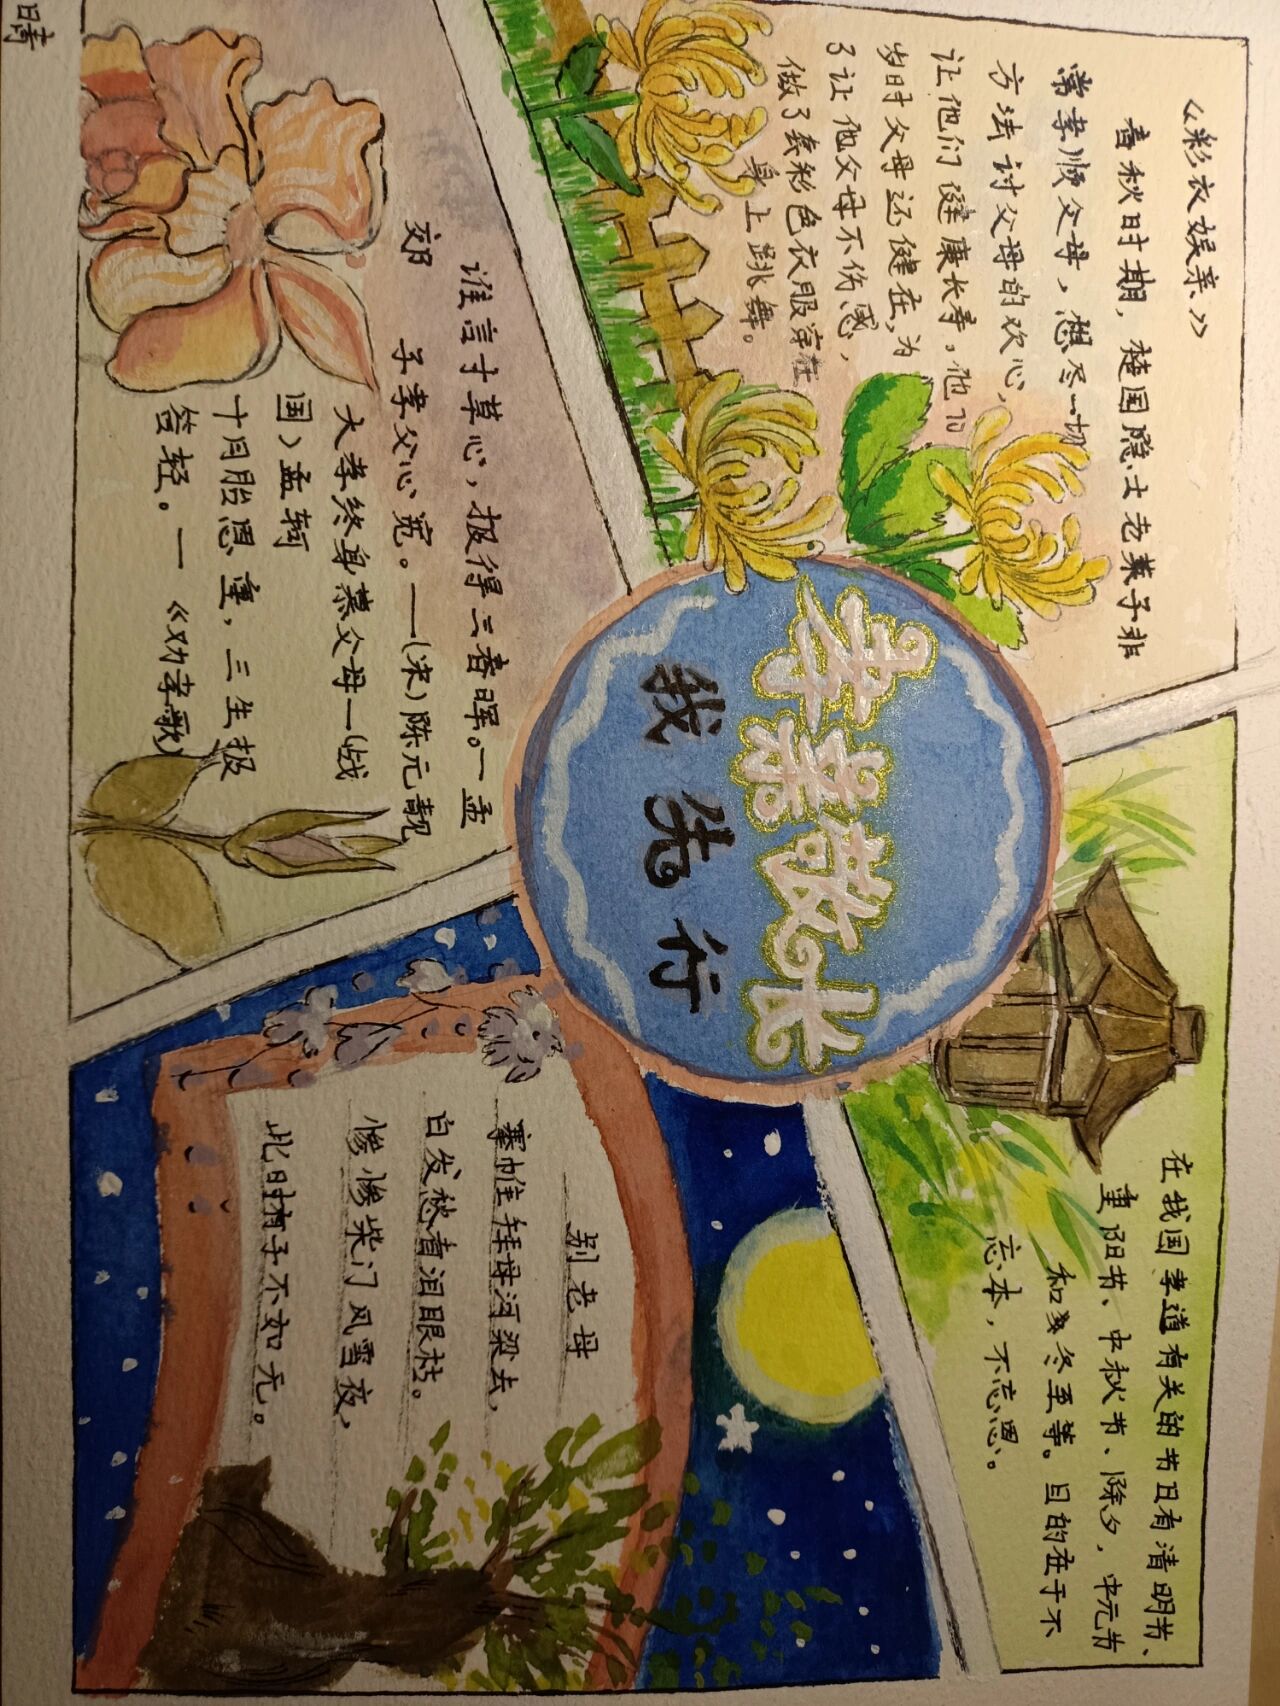 《彩衣娱亲》
春秋时期，楚国隐士老莱子非
常孝顺父母，想尽一切
方法讨父母的欢心，
让他们健康长寿。他70
岁时父母还健在，为
了让他父母不伤感，
做了套彩色衣服穿在
身上跳舞。
在我国孝道有关的节日有清明节、
重阳节、中秋节、除夕，中元节
和冬至等。目的在于不
忘本，不忘恩。
孝亲敬长
我先行
谁言寸草心，报得三春晖。一孟
郊 子孝父心宽。——(宋)陈元靓
大孝终身慕父母一(战
国)孟轲
十月胎恩重，三生报
答轻。一《劝孝歌》
别老母
搴帷拜母河梁去，
白发愁看泪眼枯。
惨惨柴门风雪夜，
此时有子不如无。
晴